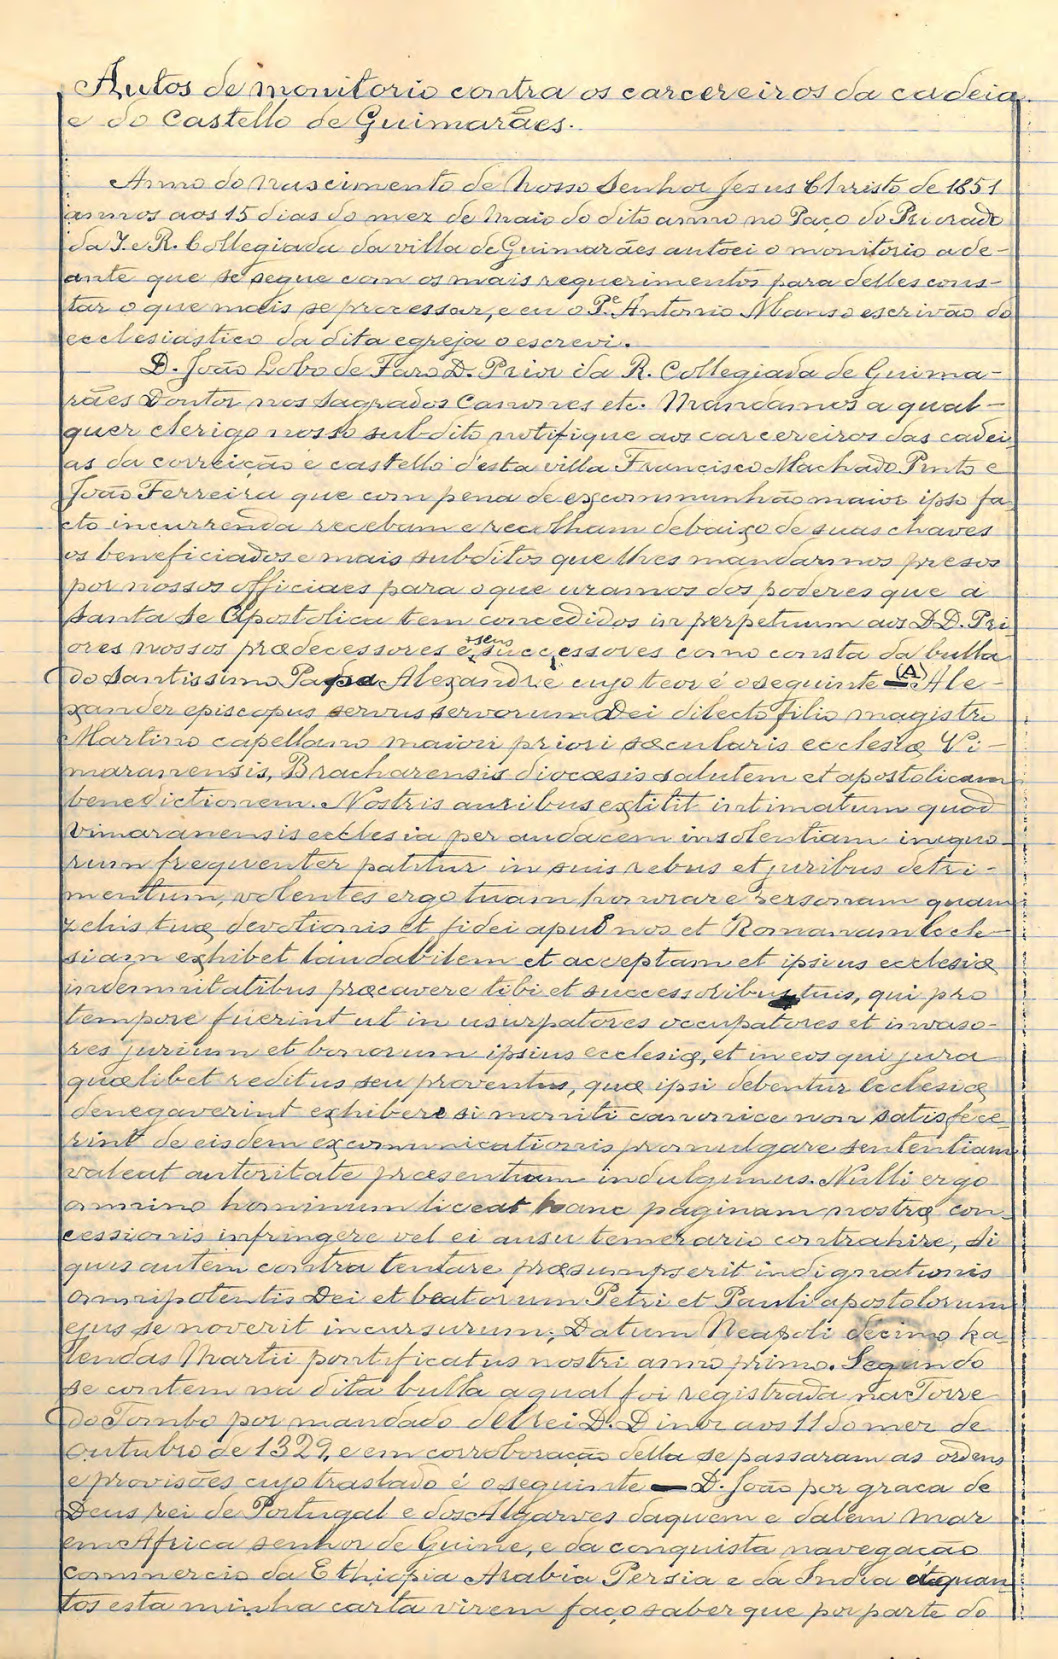 Autos de monitorio contra os carcereiros da cadeia
e do Castello de Guimarães.
Anno do nascimento de Nosso Senhor Jesus Christo de 1851
annos aos 15 dias do mez de Maio do dito anno no Paço do Priorado
da I. e R. Collegiada da villa de Guimarães autoei o monitorio ade-
ante que se segue com os mais requerimentos para delles cons-
tar o que mais se processar, e eu o Pe. Antonio Manso escrivão do
ecclesiastico da dita egreja o escrevi.
D. João Lobo de Faro D. Prior da R. Collegiada de Guima-
rães Doutor nos Sagrados Canones etc. Mandamos a qual-
quer clerigo nosso subdito notifique aos carcereiros das cadei
as da correição e castello d'esta villa Francisco Machado Pinto e
João Ferreira que com pena de excommunhão maior ipso fa-
cto incurrenda recebam e recolham debaixo de suas chaves
os beneficiados e mais subditos que lhes mandarmos presos
por nossos officiaes para o que uzamos dos poderes que a
Santa Sé Apostolica tem concedidos in perpetuum aos D.D. Pri
ores nossos prædecessores e seus successores como consta da bulla
do Santissimo Papa Alexandre cujo teor é o seguinte — (A) Ale-
xander episcopus servus servorum Dei dilecto filio magistro
Martino capellano maiori priori sæcularis ecclesiæ Vi-
maranensis, Bracharensis diocæsis salutem et apostolicam
benedictionem. Nostris auribus extitit intimatum quod
Vimaranensis ecclesia per audacem insolentiam iniquo-
rum frequenter patitur in suis rebus et juribus detri-
mentum, volentes ergo tuam honorare personam quam
zelus tuæ devotionis et fidei apud nos et Romanam Eccle-
siam exhibet laudabilem et acceptam et ipsius ecclesiæ
indemnitatibus præcavere tibi et successoribus tuis, qui pro
tempore fuerint ut in usurpatores occupatores et invaso-
res jurium et bonorum ipsius ecclesiæ, et in eos qui jura
quælibet reditus seu proventus, quæ ipsi debentur Ecclesiæ
denegaverint exhibere si moniti canonice non satisfece-
rint de eisdem excomunicationis promulgare sententiam
valeat autoritate præsentium indulgimus. Nulli ergo
omnino hominum liceat hanc paginam nostræ con-
cessionis infringere vel ei ausu temerario contrahire, si
quis autem contra tentare præsumpserit indignationis
omnipotentis Dei et beatorum Petri et Pauli apostolorum
ejus se noverit incursurum; Datum Neapoli decimo ka-
lendas Martii pontificatus nostri anno primo. Segundo
se contem na dita bulla a qual foi registrada na Torre
do Tombo por mandado del rei D. Diniz aos 11 do mez de
outubro de 1329, e em corroboração della se passaram as ordens
e provisões cujo traslado é o seguinte — D. João por graça de
Deus rei de Portugal e dos Algarves daquem e dalem mar
em Africa senhor de Guine, e da conquista navegação
commercio da Ethiopia Arabia Persia e da India a quan
tos esta minha carta virem faço saber que por parte do